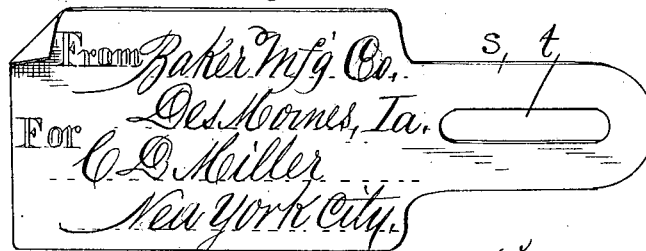 From Baker Mfg Co.
Des Moines, Ia.
For C D Miller
New York City.
s, t